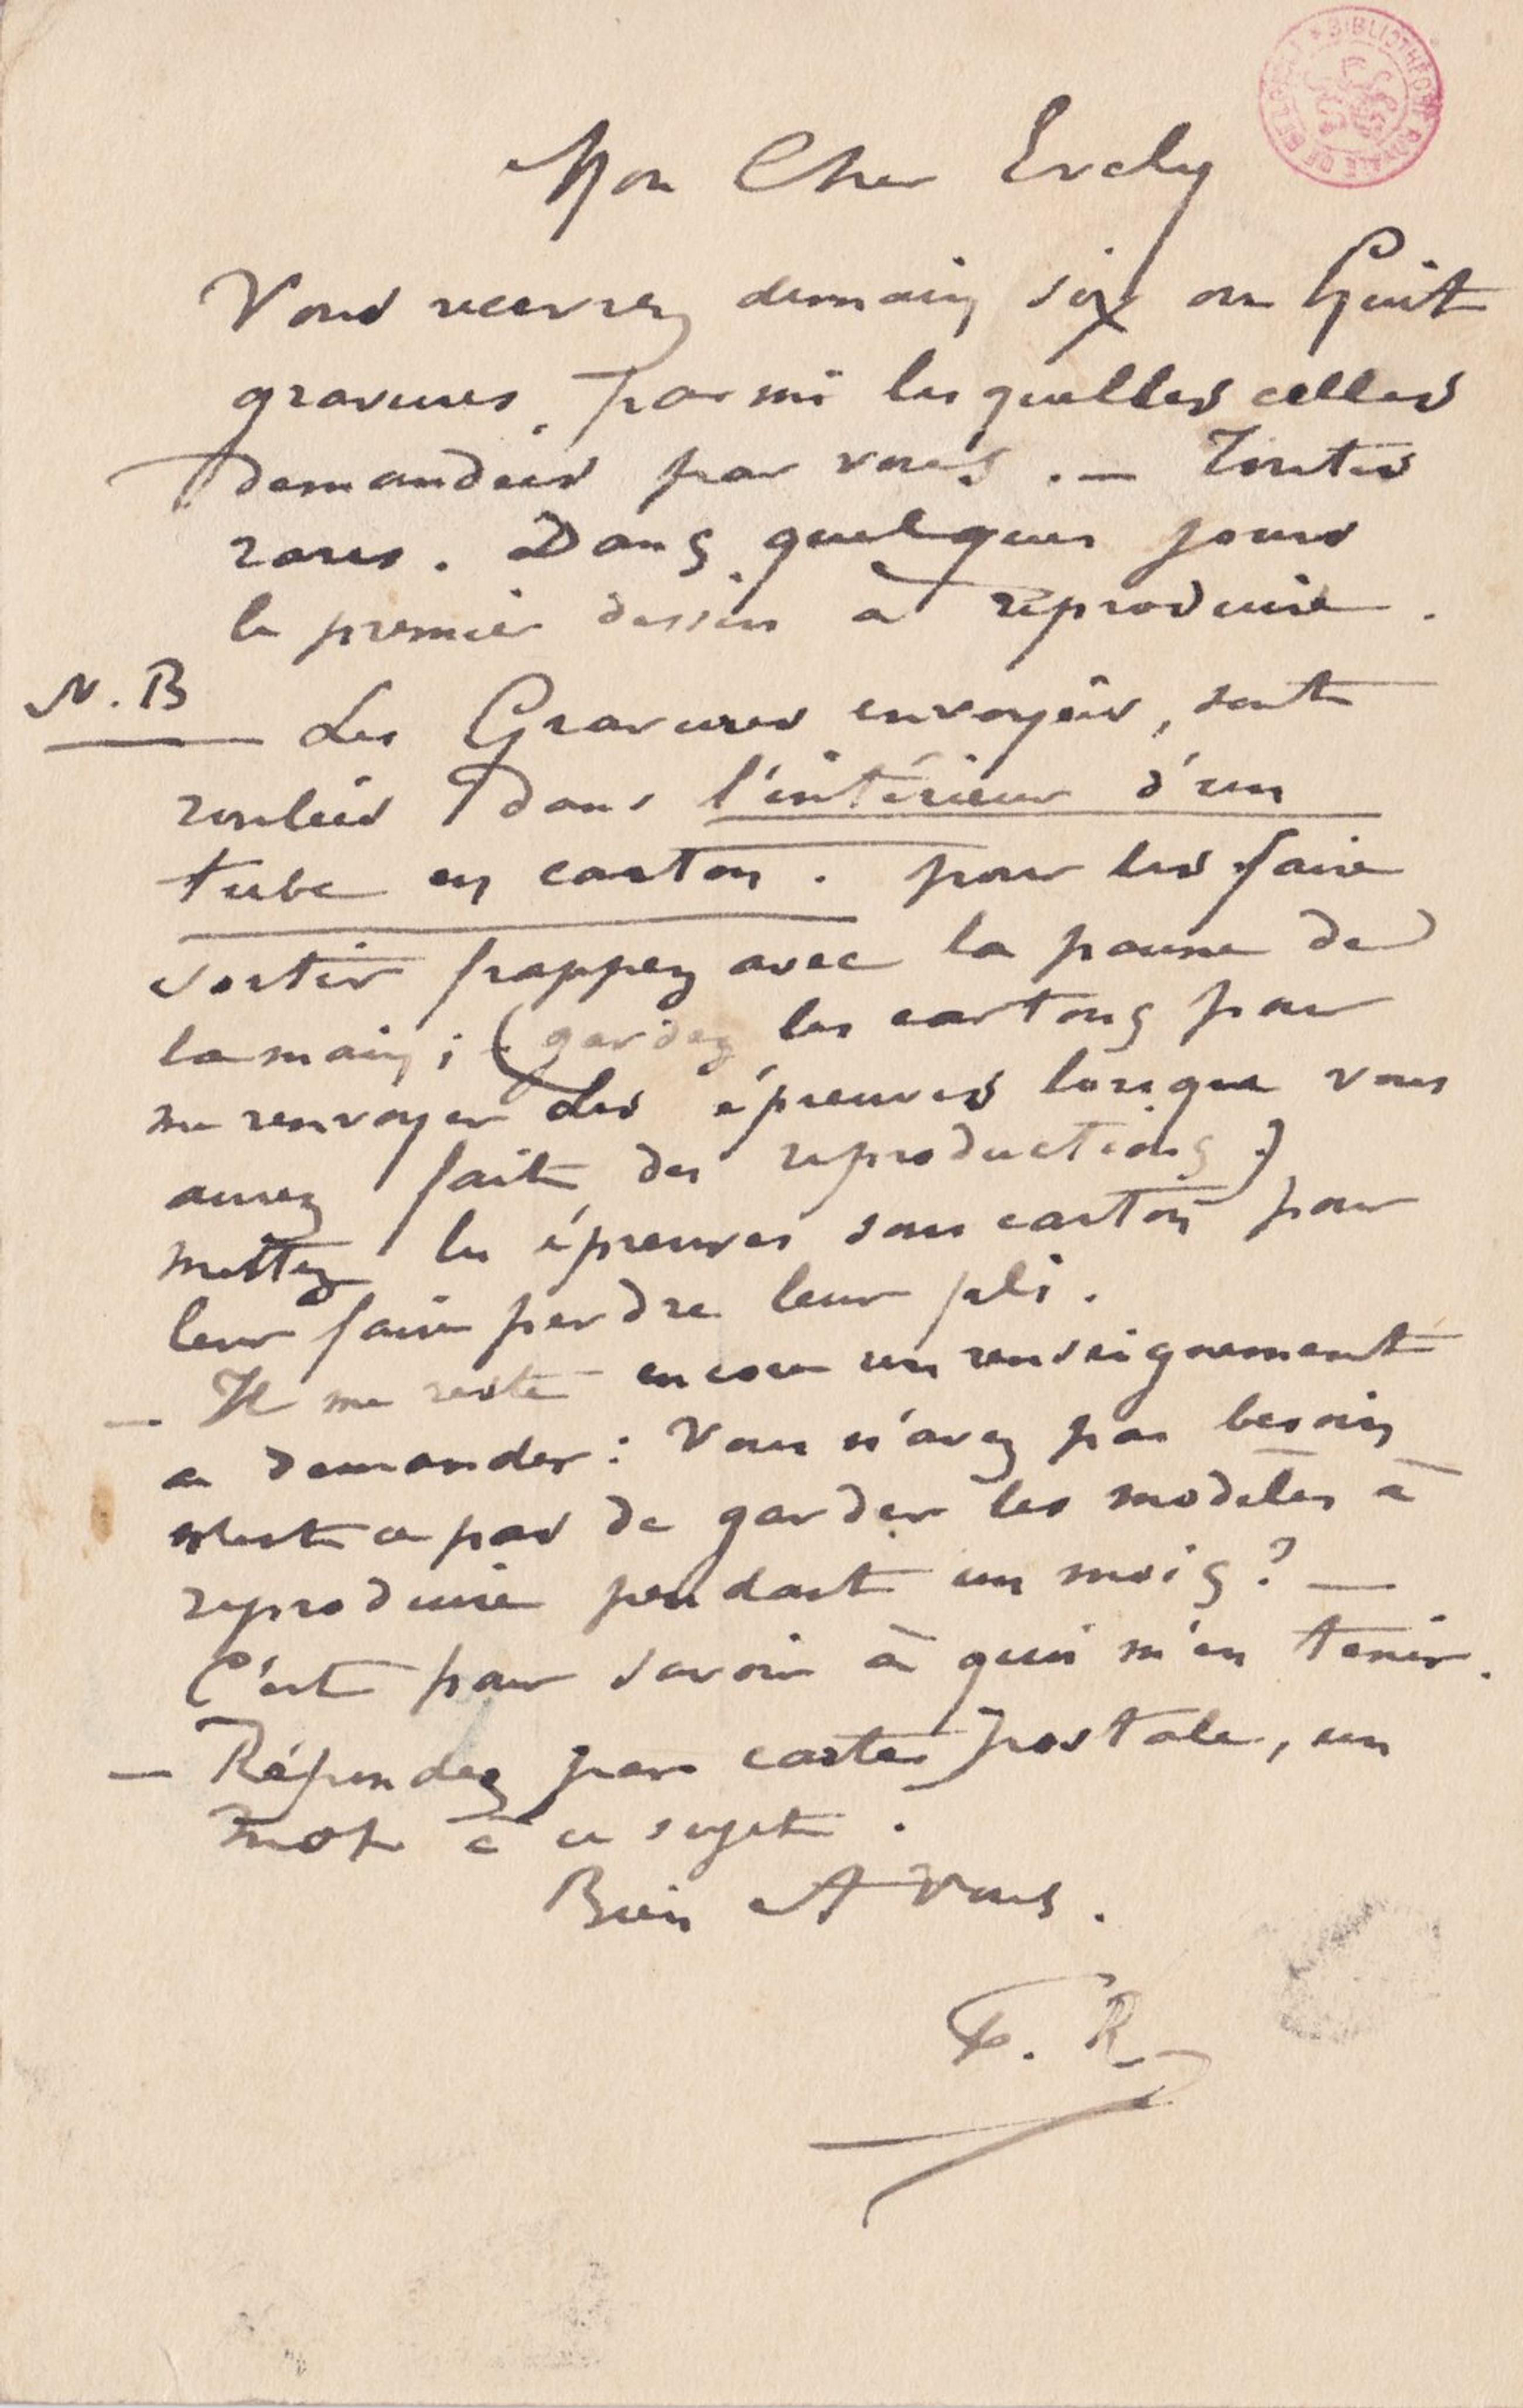 BIBLIOTHÈQUE ROYALE DE BELGIQUE
Mon Cher Evely
Vous recevrez demain six ou Huit
gravures, parmi lesquelles celles
demandées par vous. — Toutes
rares. Dans quelques jours
le premier dessin à reproduire.
N.B
Les Gravures envoyées, sont
roulées dans l'intérieur d'un
tube en carton. pour les faire
sortir frappez avec la paume de
la main; (gardez les cartons pour
me renvoyer les épreuves lorsque vous
aurez fait des reproductions)
mettez les épreuves sous carton pour
leur faire perdre leur pli.
— Il me reste encore un renseignement
a demander: Vous n'avez pas besoin
n'est ce pas de garder les modèles à
reproduire pendant un mois? —
C'est pour savoir à quoi m'en tenir.
— Répondez par carte postale, un
mot à ce sujet.
Bien A vous.
F. R